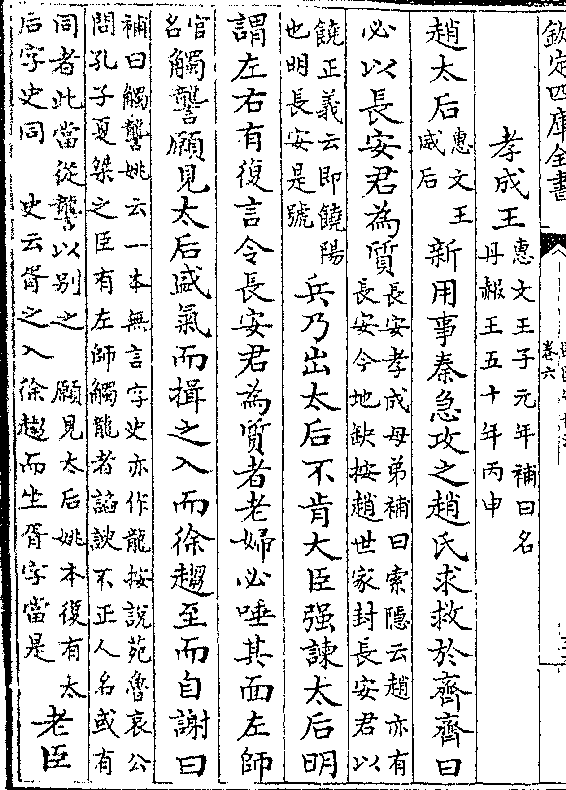 欽定四庫全書
卷六
孝成王惠文王子元年補曰名
丹赧王五十年丙申
趙太后惠文王
威后新用事秦急攻之趙氏求救於齊齊曰
必以長安君為質長安孝成母弟補曰索隱云趙亦有
長安今地缺按趙世家封長安君以
饒正義云即饒陽
也明長安是號兵乃出太后不肯大臣强諫太后明
謂左右有復言令長安君為質者老婦必唾其面左師
官
名觸讋願見太后盛氣而揖之入而徐趨至而自謝曰
補曰觸讋姚云一本無言字史亦作龍按說苑魯哀公
問孔子夏桀之臣有左師觸龍者諂諛不正人名或有
同者此當從讋以别之 願見太后姚本復有太
后字史同 史云胥之入徐趨而坐胥字當是老臣